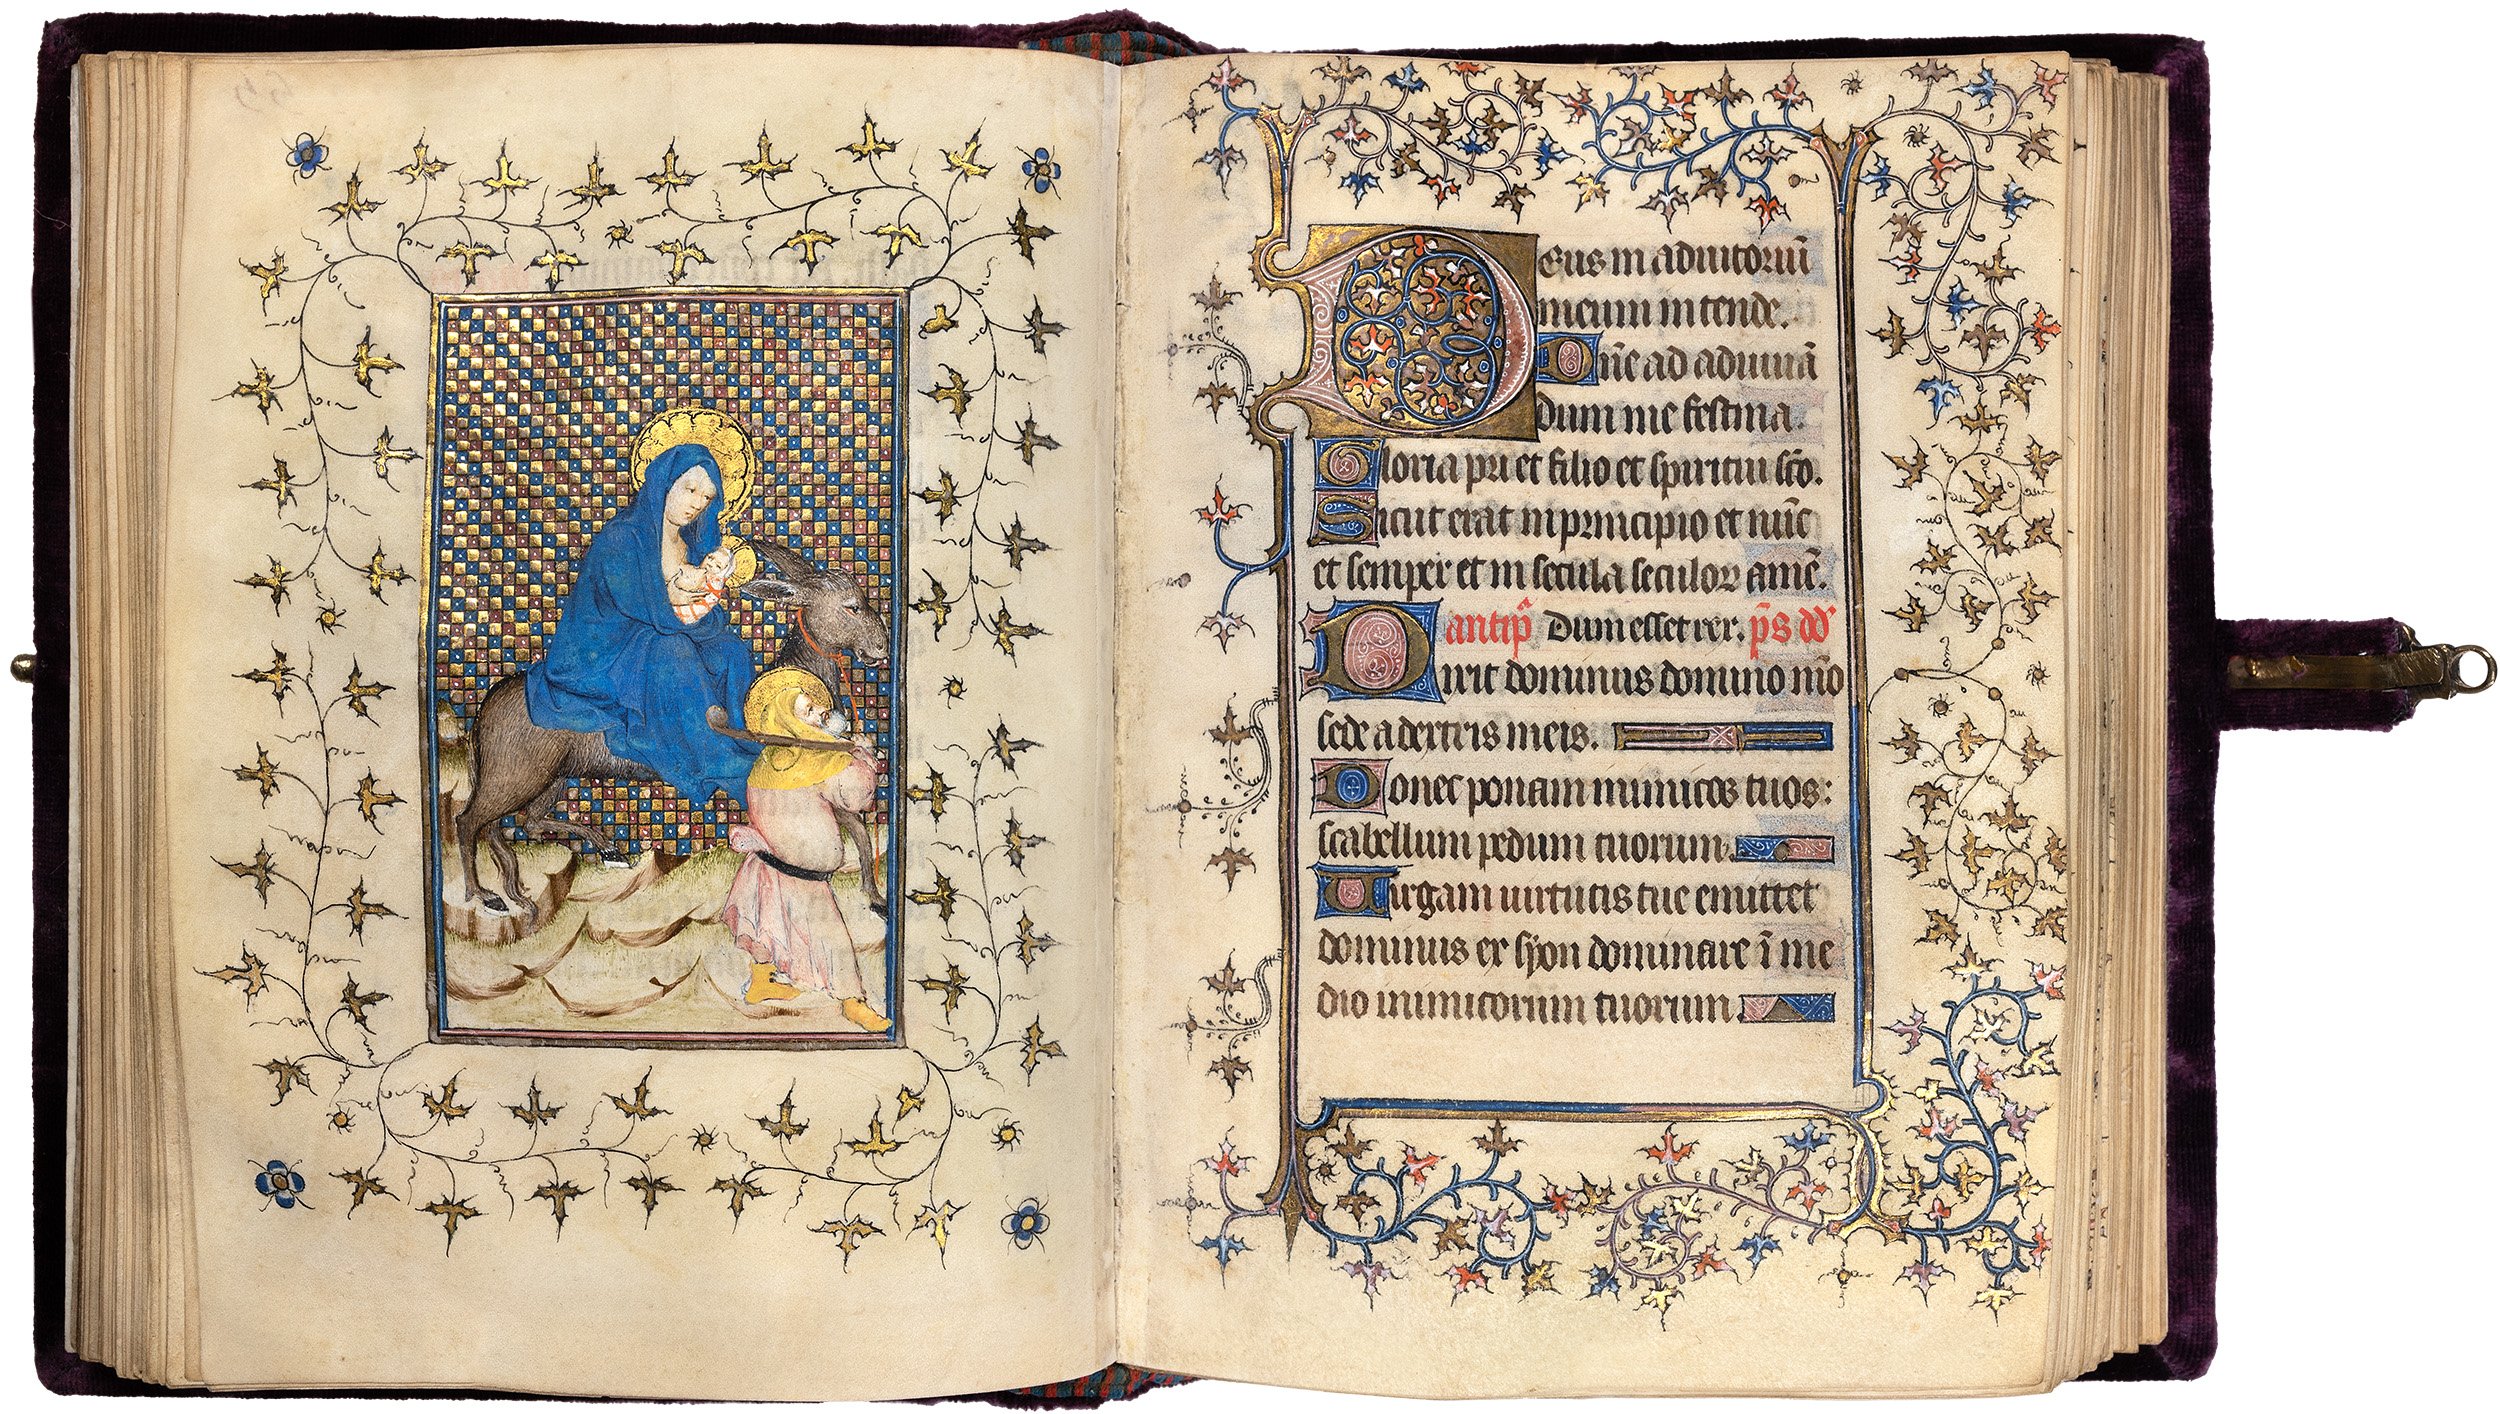 Deus in adiutoriũ
meum intende.
Dñe ad adiuuã
dum me festina.
Gloria pri et filio et spiritui sc̃o.
Sicut erat in principio et nũc
et semper et in secula seculoꝝ amẽ.
antip̃ Dum esset rex. p̃s dd̾
Dixit dominus domino mẽo
sede a dextris meis.
Donec ponam inimicos tuos:
scabellum pedum tuorum.
Uirgam uirtutis tue emittet
dominus ex syon dominare ĩ me
dio inimicorum tuorum.